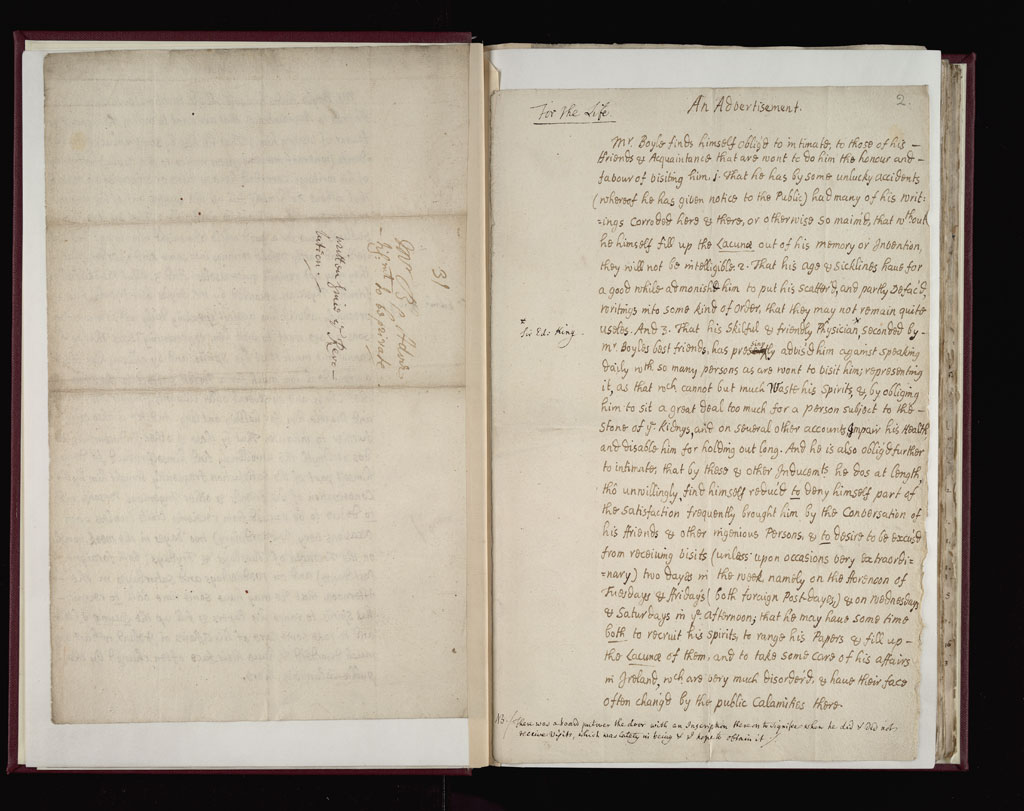 31
Mr B's Adver
to be private
written Gent. &
lution.
For the Life.
An Advertisement.
2.
Mr. Boyle finds himself oblig'd to intimate, to those of his –
ffriends & Acquaintance that are wont to do him the honour and –
favour of visiting him. 1. That he has by some unlucky accidents
(whereof he has given notice to the Public) had many of his writ=
=ings Corroded here & there, or otherwise so maim'd, that wthout
he himself fill up the Lacunæ out of his memory or Invention,
they will not be intelligible. 2. That his Age & Sicklines have for
a good while admonish'd him to put his scatter'd, and partly Defac'd,
writings into some kind of Order, that they may not remain quite
useles. And 3. That his Skilful & friendly Physician*, seconded by –
* Sir Ed: King.
Mr. Boyles best friends, has pressingly advis'd him against speaking
daily wth so many persons as are wont to visit him; representing
it, as that wch cannot but much Waste his Spirits, &, by obliging
him to sit a great deal too much for a person subject to the –
stone of ye. Kidnys, and on several other accounts, Impair his Health
and disable him for holding out long. And he is also oblig'd further
to intimate, that by these & other Inducemts he dos at length,
tho unwillingly, find himself reduc'd to deny himself part of
the satisfaction frequently brought him by the Conversation of
his ffriends & other ingenious Persons, & to desire to be excus'd
from receiving visits (unless upon occasions very Extraordi=
=nary) two dayes in the week, namely on the fforenoon of
Tuesdays & ffridays (both foraign Post-dayes,) & on Wednesdays
& Saturdays in ye. Afternoon; that he may have some time
both to recruit his spirits, to range his Papers & fill up –
the Lacunæ of them, and to take some care of his affairs
in Ireland, wch are very much disorder'd, & have their face
often chang'd by the public Calamities there
NB. There was a board put over the door with an Inscription thereon to signifie when he did & did not
receive Visits, which was lately in being & I hope to obtain it